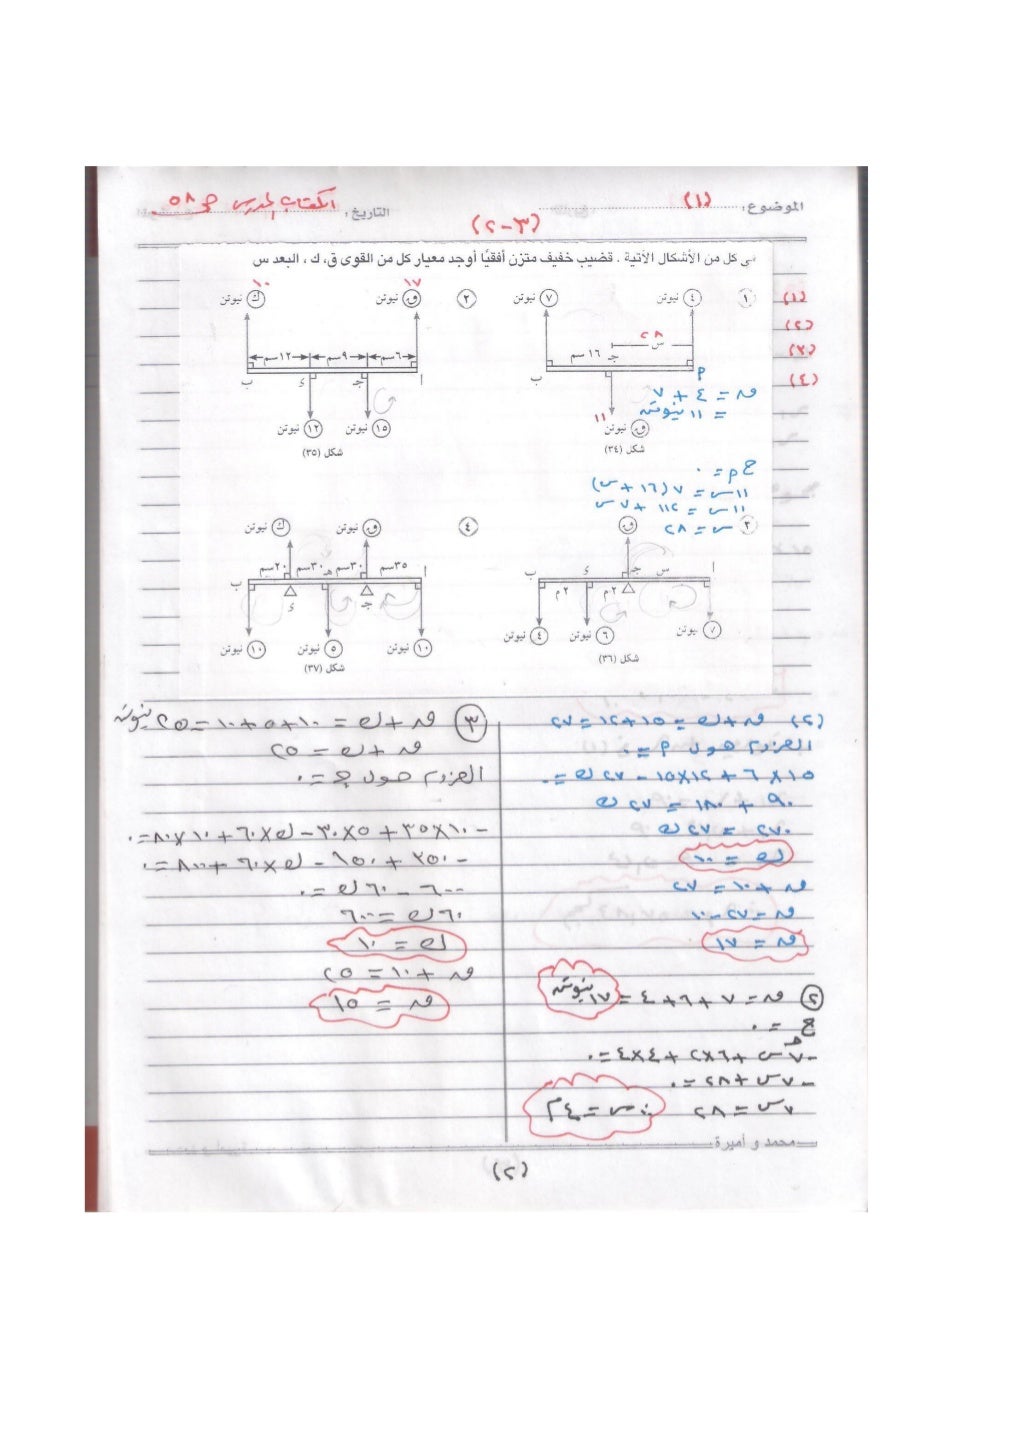 الموضوع: (١) التاريخ: الكتاب المدرسى ص ٥٨
(٣-٢)
فى كل من الأشكال الآتية . قضيب خفيف متزن أفقيًا أوجد معيار كل من القوى ق، ك ، البعد س
(١)
(٢)
(٣)
(٤)
١
٤ نيوتن
٧ نيوتن
٢٨
س
١٦ سم
جـ
ب
م
١١
ق نيوتن
شكل (٣٤)
ق = ٤ + ٧
= ١١ نيوتن
ج م = ٠
١١ س = ٧ (١٦ + س)
١١ س = ١١٢ + ٧ س
س = ٢٨
٢
١٧
ق نيوتن
١٠
ك نيوتن
٦سم
٩سم
١٢سم
أ
جـ
د
ب
١٥ نيوتن
١٢ نيوتن
شكل (٣٥)
٣
ق
أ
س
جـ
د
ب
٢م
٢م
٧ نيوتن
٦ نيوتن
٤ نيوتن
شكل (٣٦)
٤
ق نيوتن
ك نيوتن
٣٥سم
٣٠سم
هـ
٣٠سم
٢٠سم
أ
جـ
د
ب
١٠ نيوتن
٥ نيوتن
١٠ نيوتن
شكل (٣٧)
(٢) ق + ك = ١٥ + ١٢ = ٢٧
العزوم حول م = ٠
١٥ × ٦ + ١٢ × ١٥ - ٢٧ ك = ٠
٩٠ + ١٨٠ = ٢٧ ك
٢٧٠ = ٢٧ ك
ك = ١٠
ق + ١٠ = ٢٧
ق = ٢٧ - ١٠
ق = ١٧
٢ ق = ٧ + ٦ + ٤ = ١٧ نيوتن
ج جـ = ٠
- ٧ س + ٦ × ٢ + ٤ × ٤ = ٠
- ٧ س + ٢٨ = ٠
٧ س = ٢٨ ∴ س = ٤ م
٣ ق + ك = ١٠ + ٥ + ١٠ = ٢٥ نيوتن
ق + ك = ٢٥
العزوم حول جـ = ٠
- ١٠ × ٣٥ + ٥ × ٣٠ - ك × ٦٠ + ١٠ × ٨٠ = ٠
- ٣٥٠ + ١٥٠ - ك × ٦٠ + ٨٠٠ = ٠
٦٠٠ - ٦٠ ك = ٠
٦٠ ك = ٦٠٠
ك = ١٠
ق + ١٠ = ٢٥
ق = ١٥
محمد و أميرة
(٢)